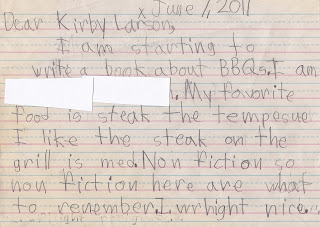 June 1, 2011
Dear Kirby Larson,
I am starting to
write a book about BBQs. I am
. My favorite
food is steak the tempesuel
I like the steak on the
grill is med. Non fiction so
non fiction here are what
to remember. I wrhight nice.